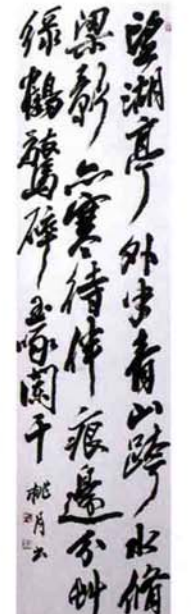 望湖亭外半青山跨水脩
梁影亦寒待伴痕邊分艸
绿鶴驚碎玉啄闌干 桃月书